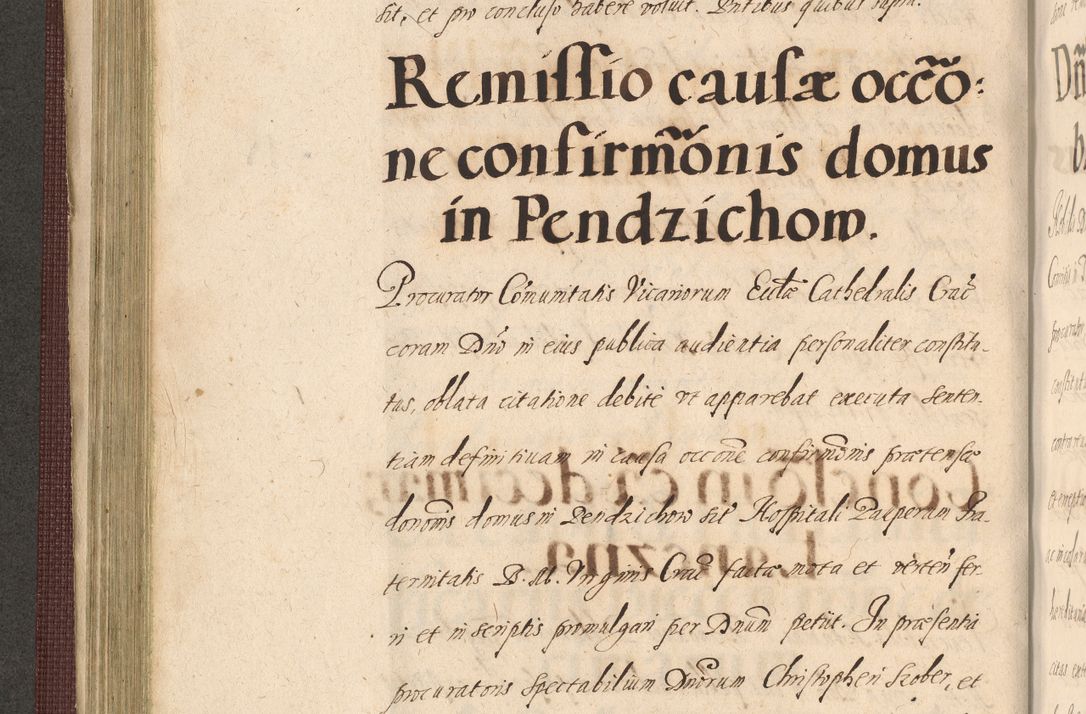 sit, et pro concluso habere voluit. Pntibus quibus supra.
Remissio causæ occõ:
ne confirmõnis domus
in Pendzichow.
Procurator Cõmunitatis Vicariorum Eccłæ Cathedralis Crac̃
coram Dnõ in eius publica audientia personaliter constitu-
tus, oblata citatione debite ut apparebat executa senten-
tiam definitiuam in causa occõne confirmõnis prætensæ
donõnis domus in Pendzichow sit̃ Hospitali Pauperum Fra-
ternitatis B. M. Virginis Crac̃ factæ nota et verten̄ fer-
ri et in scriptis promulgari per Dnum̃ petiit. In præsentia
procuratoris spectabilium Dnõrum Christopheri Szober, et